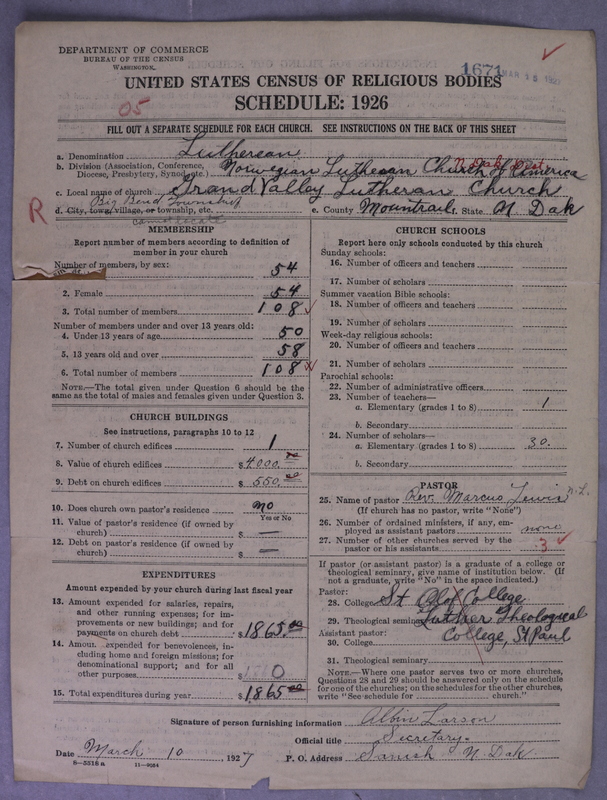 DEPARTMENT OF COMMERCE
BUREAU OF THE CENSUS
WASHINGTON
1671 MAR 15 1927
UNITED STATES CENSUS OF RELIGIOUS BODIES
05
SCHEDULE: 1926
FILL OUT A SEPARATE SCHEDULE FOR EACH CHURCH. SEE INSTRUCTIONS ON THE BACK OF THIS SHEET
a. Denomination Lutheran
N. Dak. Dist.
b. Division (Association, Conference, Diocese, Presbytery, Synod, etc.) Norwegian Lutheran Church of America
c. Local name of church Grand Valley Lutheran Church
R d. City, town, village, or township, etc. Big Bend Township e. County Mountrail f. State N. Dak
cannot locate
MEMBERSHIP
Report number of members according to definition of
member in your church
Number of members, by sex:
54
2. Female 54
3. Total number of members 108
Number of members under and over 13 years old:
4. Under 13 years of age 50
5. 13 years old and over 58
6. Total number of members 108
NOTE.—The total given under Question 6 should be the
same as the total of males and females given under Question 3.
CHURCH BUILDINGS
See instructions, paragraphs 10 to 12
7. Number of church edifices 1
8. Value of church edifices $4000.00
9. Debt on church edifices $550.00
10. Does church own pastor's residence no
Yes or No
11. Value of pastor's residence (if owned by
church) $ —
12. Debt on pastor's residence (if owned by
church) $ —
EXPENDITURES
Amount expended by your church during last fiscal year
13. Amount expended for salaries, repairs,
and other running expenses; for im-
provements or new buildings; and for
payments on church debt $1865.00
14. Amount expended for benevolences, in-
cluding home and foreign missions; for
denominational support; and for all
other purposes $ 0
15. Total expenditures during year $1865.00
CHURCH SCHOOLS
Report here only schools conducted by this church
Sunday schools:
16. Number of officers and teachers
17. Number of scholars
Summer vacation Bible schools:
18. Number of officers and teachers
19. Number of scholars
Week-day religious schools:
20. Number of officers and teachers
21. Number of scholars
Parochial schools:
22. Number of administrative officers
23. Number of teachers—
a. Elementary (grades 1 to 8) 1
b. Secondary
24. Number of scholars—
a. Elementary (grades 1 to 8) 30.
b. Secondary
PASTOR
25. Name of pastor Rev. Marcus Lewis N.L.
(If church has no pastor, write "None")
26. Number of ordained ministers, if any, em-
ployed as assistant pastors none
27. Number of other churches served by the
pastor or his assistants 3
If pastor (or assistant pastor) is a graduate of a college or
theological seminary, give name of institution below. (If
not a graduate, write "No" in the space indicated.)
Pastor:
28. College St Olof College
29. Theological seminary Luther Theological
Assistant pastor: College, St Paul
30. College
31. Theological seminary
NOTE.—Where one pastor serves two or more churches,
Questions 28 and 29 should be answered only on the schedule
for one of the churches; on the schedules for the other churches,
write "See schedule for church."
Signature of person furnishing information Albin Larson
Official title Secretary.
Date March 10, 1927 P. O. Address Sanish N. Dak.
8—5518 a 11—9064